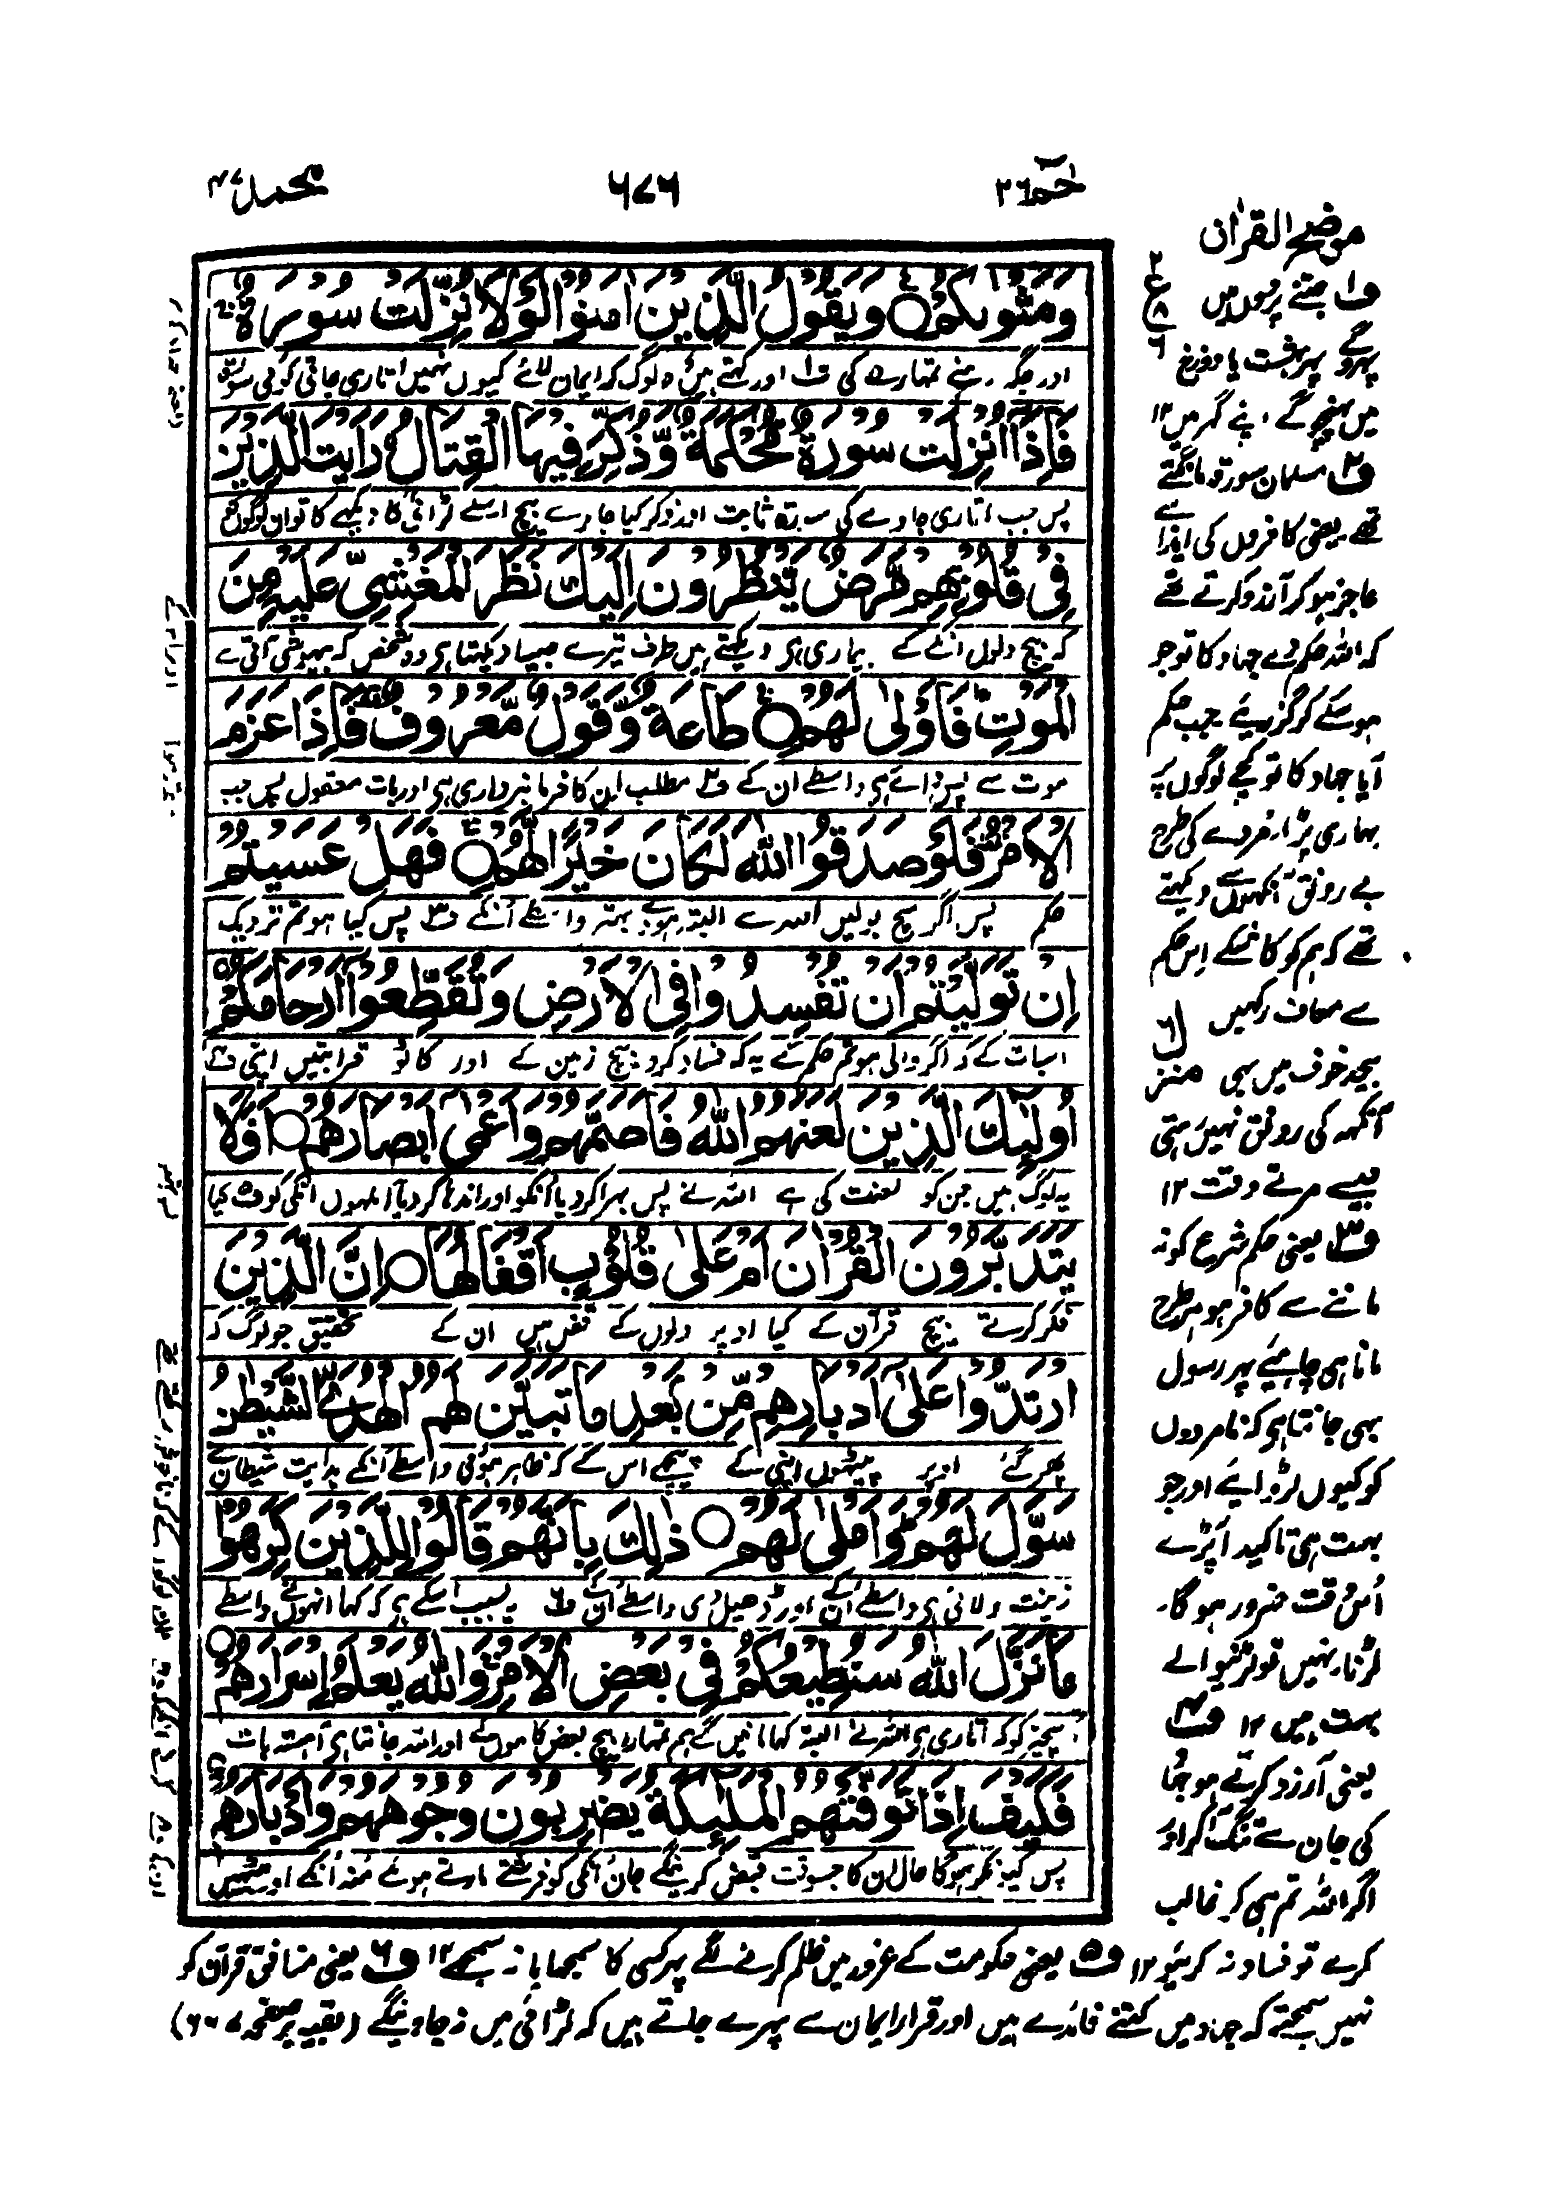 حٰمٓ ٢٦
٦٧٦
محمد ٤٧
وَمَثْوٰىكُمْ ۝ وَيَقُوْلُ الَّذِيْنَ اٰمَنُوْا لَوْلَا نُزِّلَتْ سُوْرَةٌ
اور جگہ رہنے تمہارے کی ف١ اور کہتے ہیں وہ لوگ کہ ایمان لائے کیوں نہیں اتاری جاتی کوئی سورۃ
فَاِذَآ اُنْزِلَتْ سُوْرَةٌ مُّحْكَمَةٌ وَّذُكِرَ فِيْهَا الْقِتَالُ رَاَيْتَ الَّذِيْنَ
پس جب اتاری جاوے گی سورۃ ثابت اور ذکر کیا جاوے بیچ اسکے لڑائی کا دیکھے گا تو ان لوگوں کو
فِيْ قُلُوْبِهِمْ مَّرَضٌ يَّنْظُرُوْنَ اِلَيْكَ نَظَرَ الْمَغْشِيِّ عَلَيْهِ مِنَ
کہ بیچ دلوں انکے کے بیماری ہی دیکھتے ہیں طرف تیرے جیسا دیکھتا ہی وہ شخص کہ بیہوشی آتی ہے
الْمَوْتِ فَاَوْلٰى لَهُمْ ۝ طَاعَةٌ وَّقَوْلٌ مَّعْرُوْفٌ فَاِذَا عَزَمَ
موت سے پس وائے ہی واسطے ان کے ف٢ مطلب ان کا فرمانبرداری ہی اور بات معقول پس جب
الْاَمْرُ فَلَوْ صَدَقُوا اللّٰهَ لَكَانَ خَيْرًا لَّهُمْ ۝ فَهَلْ عَسَيْتُمْ
حکم پس اگر سچ بولیں اللہ سے البتہ ہووے بہتر واسطے اُنکے ف٣ پس کیا ہو تم نزدیک
اِنْ تَوَلَّيْتُمْ اَنْ تُفْسِدُوْا فِي الْاَرْضِ وَتُقَطِّعُوْٓا اَرْحَامَكُمْ ۝
اسبات کے کہ اگر والی ہو تم حکم کے یہ کہ فساد کرو بیچ زمین کے اور کاٹو قرابتیں اپنی ف٤
اُولٰٓئِكَ الَّذِيْنَ لَعَنَهُمُ اللّٰهُ فَاَصَمَّهُمْ وَاَعْمٰٓى اَبْصَارَهُمْ ۝ اَفَلَا
یہ لوگ ہیں جن کو لعنت کی ہے اللہ نے پس بہرا کر دیا اُنکو اور اندھا کر دیا آنکھوں انکی کو ف٥ کیا
يَتَدَبَّرُوْنَ الْقُرْاٰنَ اَمْ عَلٰى قُلُوْبٍ اَقْفَالُهَا ۝ اِنَّ الَّذِيْنَ
فکر کرتے بیچ قرآن کے کیا اوپر دلوں کے قفل ہیں ان کے تحقیق جو لوگ کہ
ارْتَدُّوْا عَلٰٓى اَدْبَارِهِمْ مِّنْۢ بَعْدِ مَا تَبَيَّنَ لَهُمُ الْهُدَى الشَّيْطٰنُ
پھر گئے اوپر پیٹھوں اپنی کے پیچھے اس کے کہ ظاہر ہوئی واسطے اُنکے ہدایت شیطان نے
سَوَّلَ لَهُمْ وَاَمْلٰى لَهُمْ ۝ ذٰلِكَ بِاَنَّهُمْ قَالُوْا لِلَّذِيْنَ كَرِهُوْا
زینت دلائی ہی واسطے اُنکے اور ڈھیل دی واسطے اُن کے ف٦ یہ بسبب اسکے ہی کہ کہا انہوں نے واسطے
مَا نَزَّلَ اللّٰهُ سَنُطِيْعُكُمْ فِيْ بَعْضِ الْاَمْرِ وَاللّٰهُ يَعْلَمُ اِسْرَارَهُمْ ۝
اسچیز کو کہ اتاری ہی اللہ نے البتہ کہا مانیں گے ہم تمہارا بیچ بعض کاموں کے اور اللہ جانتا ہی آہستہ بات
فَكَيْفَ اِذَا تَوَفَّتْهُمُ الْمَلٰٓئِكَةُ يَضْرِبُوْنَ وُجُوْهَهُمْ وَاَدْبَارَهُمْ
پس کیونکر ہوگا حال ان کا جسوقت قبض کرینگے جان اُنکی کو فرشتے مارتے ہوئے مُنہ اُنکے اور پیٹھیں
موضح القرآن
ف١ جتنے پردوں میں
پھرو گے پھر بہشت یا دوزخ
میں پہنچو گے اپنے گھر میں ١٢
ف٢ مسلمان سورۃ مانگتے
تھے یعنی کافروں کی ایذا سے
عاجز ہو کر آرزو کرتے تھے
کہ اللہ حکم دے جہاد کا تو جو
ہو سکے کر گزریئے جب حکم
آیا جہاد کا تو کچے لوگوں پر
بھاری پڑا مُردے کی طرح
بے رونق آنکھوں سے دیکھتے
تھے کہ ہم کو کاشکے اِس حکم
سے معاف رکھیں
بیحد خوف میں بھی
آنکھہ کی رونق نہیں رہتی
جیسے مرتے وقت ١٢
ف٣ یعنی حکم شرع کو نہ
ماننے سے کافر ہو ہر طرح
ماننا ہی چاہیئے پھر رسول
بھی جانتا ہی کہ نامردوں
کو کیوں لڑوایئے اور جو
بہت ہی تاکید آپڑے
اُسوقت ضرور ہو گا
لڑنا۔ نہیں تو لڑنیوالے
بہت ہیں ١٢ ف٤
یعنی آرزو کرتے ہو جہاد
کی جان سے تنگ آکر اور
اگر اللہ تم ہی کو غالب
کرے تو فساد نہ کرئیو ١٢ ف٥ یعنی حکومت کے غرور میں ظلم کرنے لگے پھر کسی کا سمجھایا نہ سمجھے ١٢ ف٦ یعنی منافق قرآن کو
نہیں سمجھتے کہ جہاد میں کتنے فائدے ہیں اور قرار ایمان سے پھرے جاتے ہیں کہ لڑائی میں نہ جاوینگے (بقیہ بر صفحہ